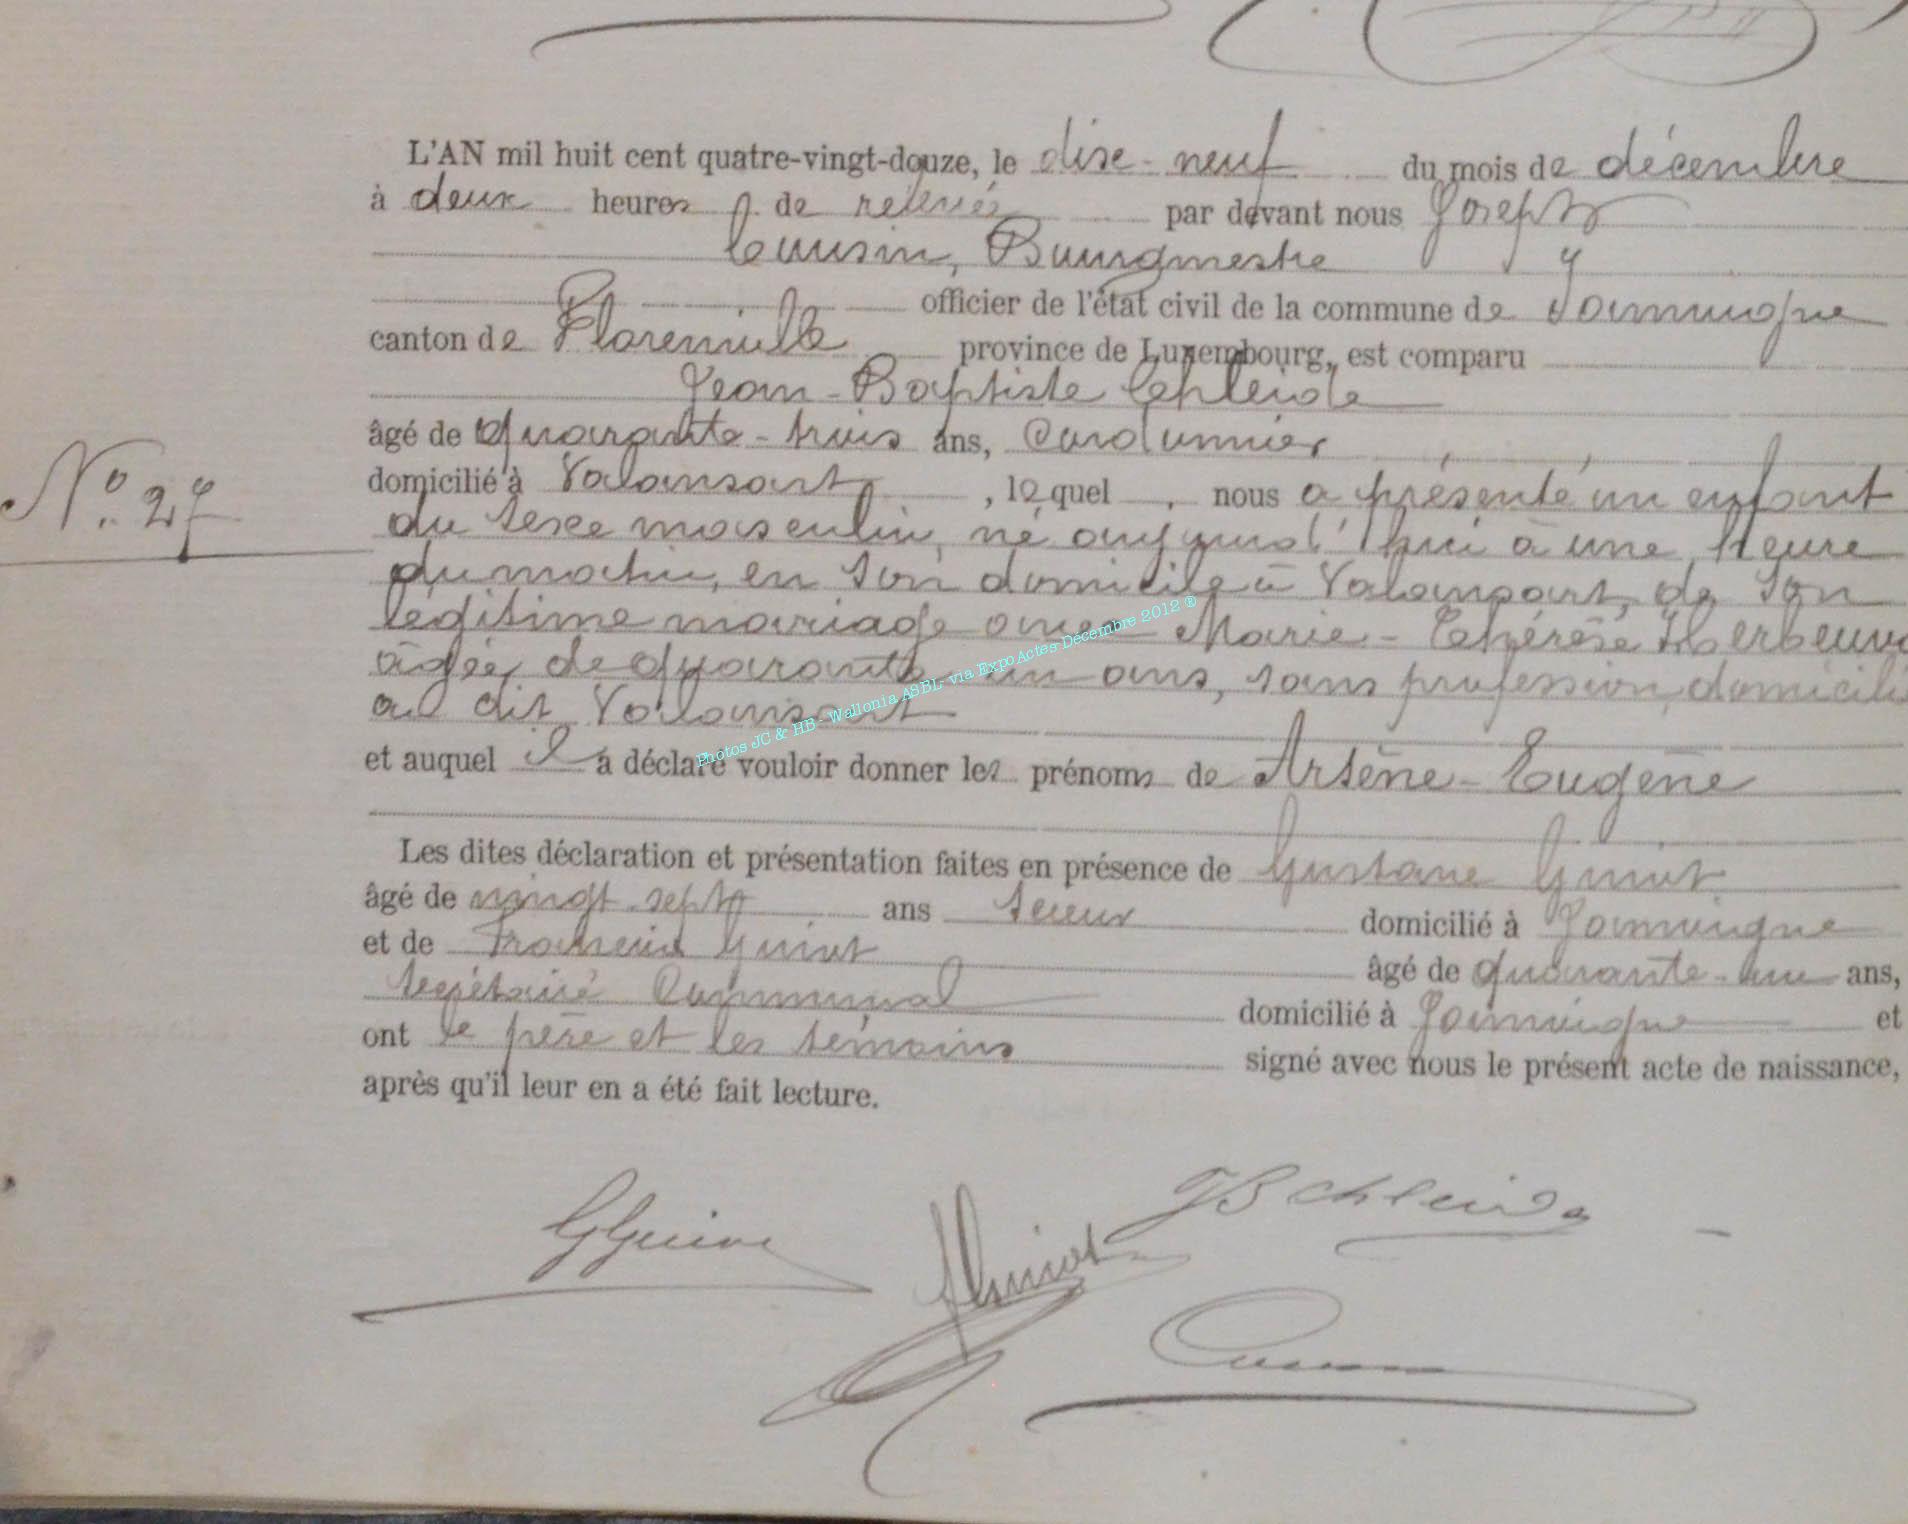 L'AN mil huit cent quatre-vingt-douze, le dixe-neuf du mois de décembre
à deux heures de relevée par devant nous Joseph
Cousin, Bourgmestre
officier de l'état civil de la commune de Jamoigne
canton de Florenville province de Luxembourg, est comparu
Jean-Baptiste Schleide
âgé de quarante-trois ans, Cordonnier
domicilié à Valansart, lequel, nous a présenté un enfant
N° 27
du sexe masculin, né aujourd'hui à une heure
du matin, en son domicile à Valansart, de son
légitime mariage avec Marie-Thérèse Herbeuv
âgée de quarante un ans, sans profession, domicili
au dit Valansart
Photos JC & HB - Wallonia ASBL- via ExpoActes-Décembre 2012 ®
et auquel il a déclaré vouloir donner les prénoms de Arsène-Eugène
Les dites déclaration et présentation faites en présence de Gustave Guiot
âgé de vingt sept ans domicilié à Jamoigne
et de François Guiot âgé de quarante-un ans,
secrétaire Communal domicilié à Jamoigne et
ont le père et les témoins signé avec nous le présent acte de naissance,
après qu'il leur en a été fait lecture.
GGuiot
JB chleide
FGuiot
Cousin